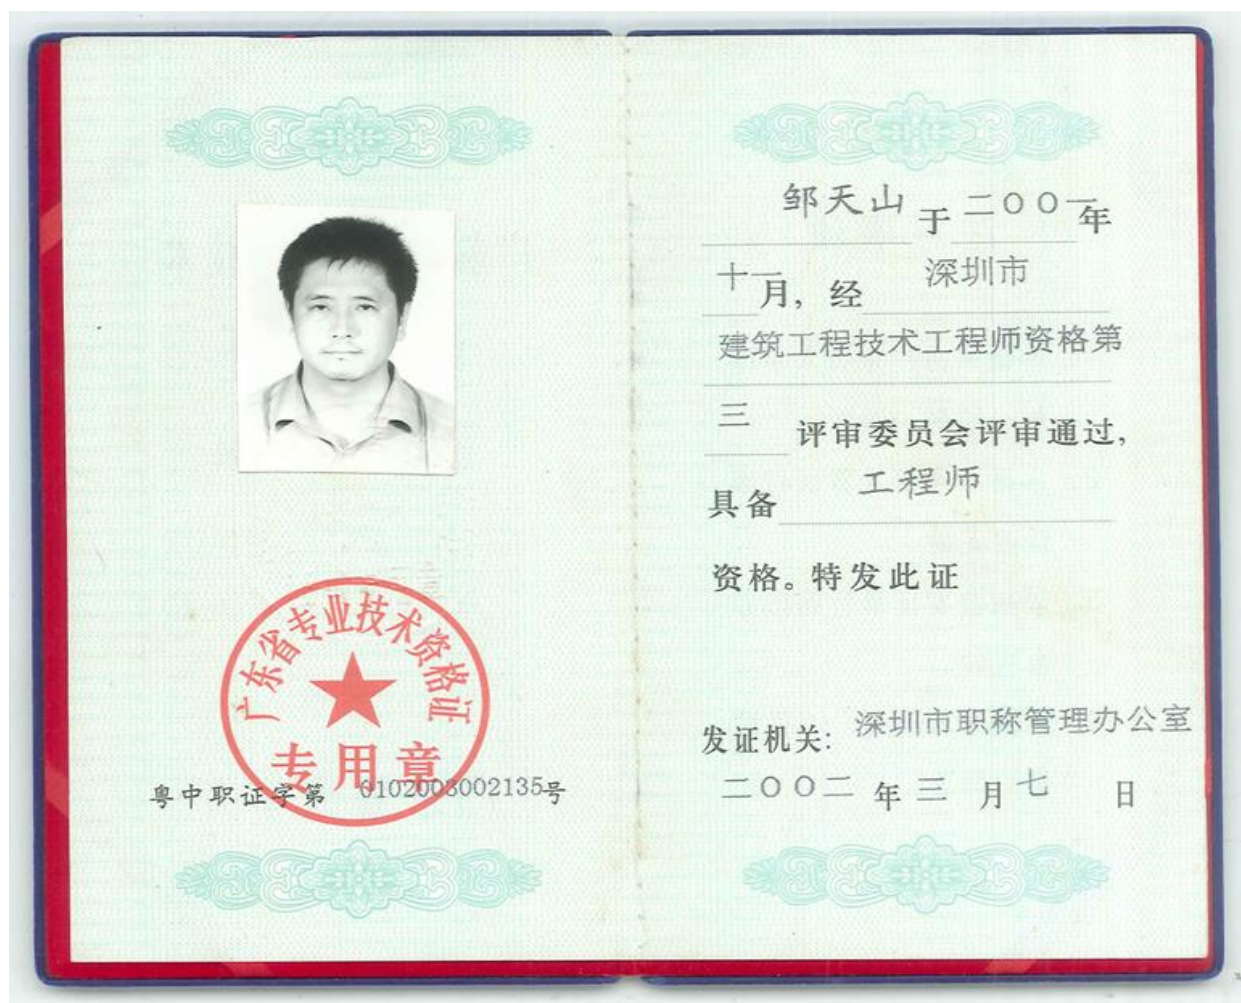 广东省专业技术资格证
专用章
粤中职证字第 0102003002135号
邹天山 于 二〇〇一年
十一月，经 深圳市
建筑工程技术工程师资格第
三 评审委员会评审通过，
具备 工程师
资格。特发此证
发证机关: 深圳市职称管理办公室
二〇〇二 年 三 月 七 日